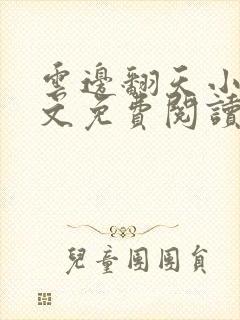 雲邊翻天小
文免費閱讀
兒童團團員